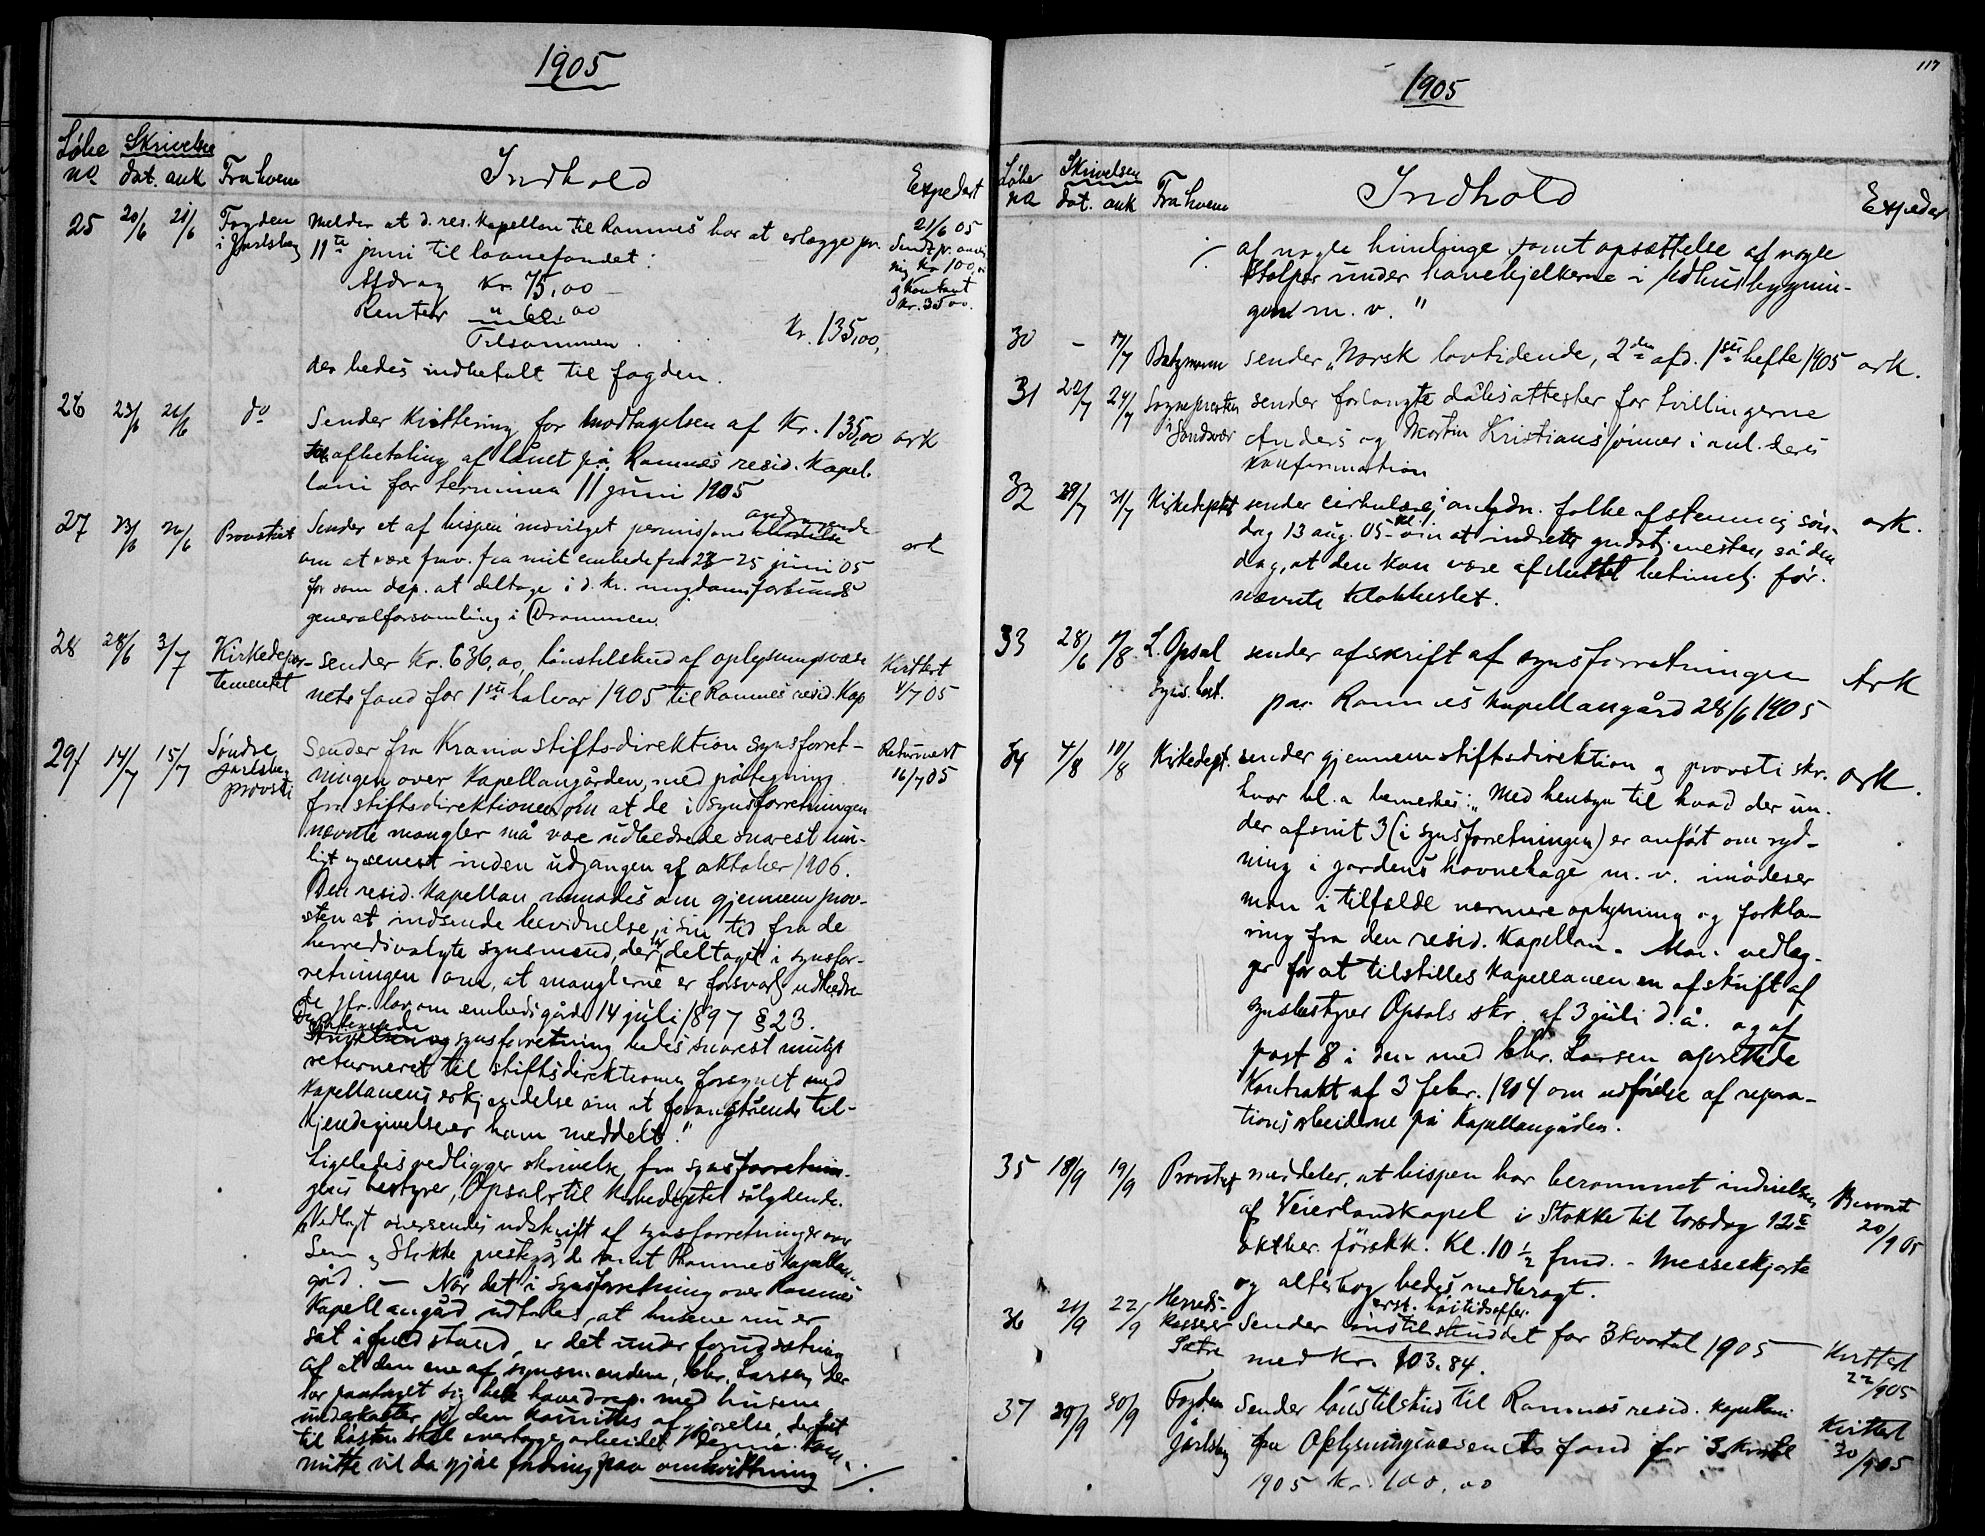 1905
Løbe no. Skrivelse dat. ank Fra hvem Indhold Expedert
25 20/6 21/6 Fogden i Jarlsberg Melder at d. res. kapellan til Ramnes har at erlægge pr.
11te juni til laanefondet:
Afdrag Kr. 75,00
Renter " 60,00
Tilsammen . Kr. 135,00,
des bedes indbetalt til fogden.
21/6 05
Sendt pr. anvis
ning kr 100,
og kontant
kr. 35.00.
26 23/6 26/6 do Sender kvittering for modtagelsen af Kr. 135,00 ark
afbetaling af lånet på Ramnes resid. kapel-
lani for terminen 11 juni 1905
27 23/6 26/6 Provstiet Sender et af bispen indvilget permissions andragende
om at være frav. fra mit embede fra 23-25 juni 05 ark
for som dep. at deltage i d. kr. ungdomsforbunds
generalforsamling i Drammen.
28 28/6 3/7 Kirkedepar-
tementet sender Kr. 636,00, lønstilskud af oplysningsvæse
nets fond for 1ste halvår 1905 til Ramnes resid. Kap
Kvittert
4/7 05
29 14/7 15/7 Søndre Jarlsberg provsti
Sender fra Krania stiftsdirektion synsforret-
ningen over kapellangården, med påtegning
fra stiftsdirektionen om at de i synsforretningen
nævnte mangler må være udbedrede snarest mu-
ligt og senest inden udgangen af oktober 1906.
Den resid. kapellan anmodes om gjennem prov-
sten at indsende bevidnelse i sin tid fra de
herredsvalgte synsmænd, der deltaget i synsfor-
retningen om, at manglerne er forsvarl. udbedre-
de jfr. lov om embedsgårde 14 juli 1897 § 23.
og synsforretning bedes snarest muligt
returneret til stiftsdirektionen forsynet med
kapellanens erkjendelse om at foranstående til-
kjendegivelse er ham meddelt."
Ligeledes vedligger skrivelse fra synsforretnin-
gens bestyrer, Opsal, til Kirkedeptet sålydende.
"Vedlagt oversendes udskrift af synsforretninger over
Sem og Stokke prestegårde samt Ramnes kapellan-
gård. — Når det i synsforretning over Ramnes
Kapellangård udtales, at husene nu er
sat i fuld stand, er det under forudsætning
af at den ene af synsmændene, Chr. Larsen, der
har paataget sig hele hovedrep. med husene
underkaster sig den komittes afgjørelse, der
til høsten skal overtage arbeidet. Denne kom-
mitte vil da gjøre fordring paa omhvittning
Returnert
16/7 05
117
1905
Løbe no Skrivelsen dat. ank Fra hvem Indhold Expeder
af nogle himlinge samt opsættelse af nogle
stolper under havebjelkerne i udhusbygnin-
gen m. v."
30 - 17/7 sender „Norsk lovtidende, 2den afd. 1ste hefte 1905 ark.
31 22/7 24/7 Sognepresten i Sandsvær sender forlangte dåbsattester for tvillingerne
Anders og Martin Kristianssønner i anl. deres
Konfirmation
32 29/7 31/7 Kirkedeptet sender cirkulære angådn. folkeafstemning søn-
dag 13 aug. 05 om at indrette gudstjenesten så den
dag, at den kan være afsluttet betimel. før
nævnte klokkeslet.
ark.
33 28/6 /8 L. Opsal
syns. best. sender afskrift af synsforretningen
paa Ramnes kapellangård 28/6 1905
Ark
34 4/8 10/8 Kirkedept. sender gjennem stiftsdirektion og provsti skr.
hvor bl. a bemerkes: „Med hensyn til hvad der un-
der afsnit 3 (i synsforretningen) er anført om ryd-
ning i gardens havnehage m. v. imødeser
man i tilfælde nærmere oplysning og forkla-
ring fra den resid. kapellan. - Man vedlæg-
ger for at tilstilles kapellanen en afskrift af
synsbestyrer Opsals skr. af 3 juli d. å. og af
post 8 i den med Chr. Larsen oprettede
Kontrakt af 3 febr. 1904 om udførelse af repara-
tionsarbeiderne på Kapellangården.
ark.
35 18/9 19/9 Provstiet meddeler, at bispen har berammet indvielsen
af Veierland kapel i Stokke til torsdag 12te
oktber. førstk. Kl. 10 ½ fmd. - Messeskjorte
og alterbog bedes medbragt.
Besvart
20/9 05
36 21/9 22/9 Herreds-
kasserer
Sætre erst. høitidsoffer.
Sender lønstilskuddet for 3 kvartal 1905
med kr. 103.84.
Kvittert
22/9 05
37 29/9 30/9 Fogden
Jarlsberg Sender lønstilskud til Ramnes resid. kapellani
fra Oplysningsvæsenets fond for 3 kvartal
1905 kr. 100.00
Kvittert
30/9 05